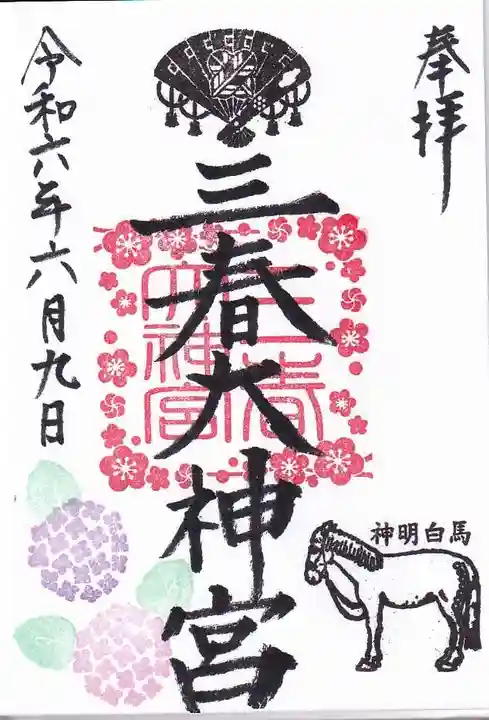 奉拝
三春大神宮
三春大神宮
令和六年六月九日
神明白馬